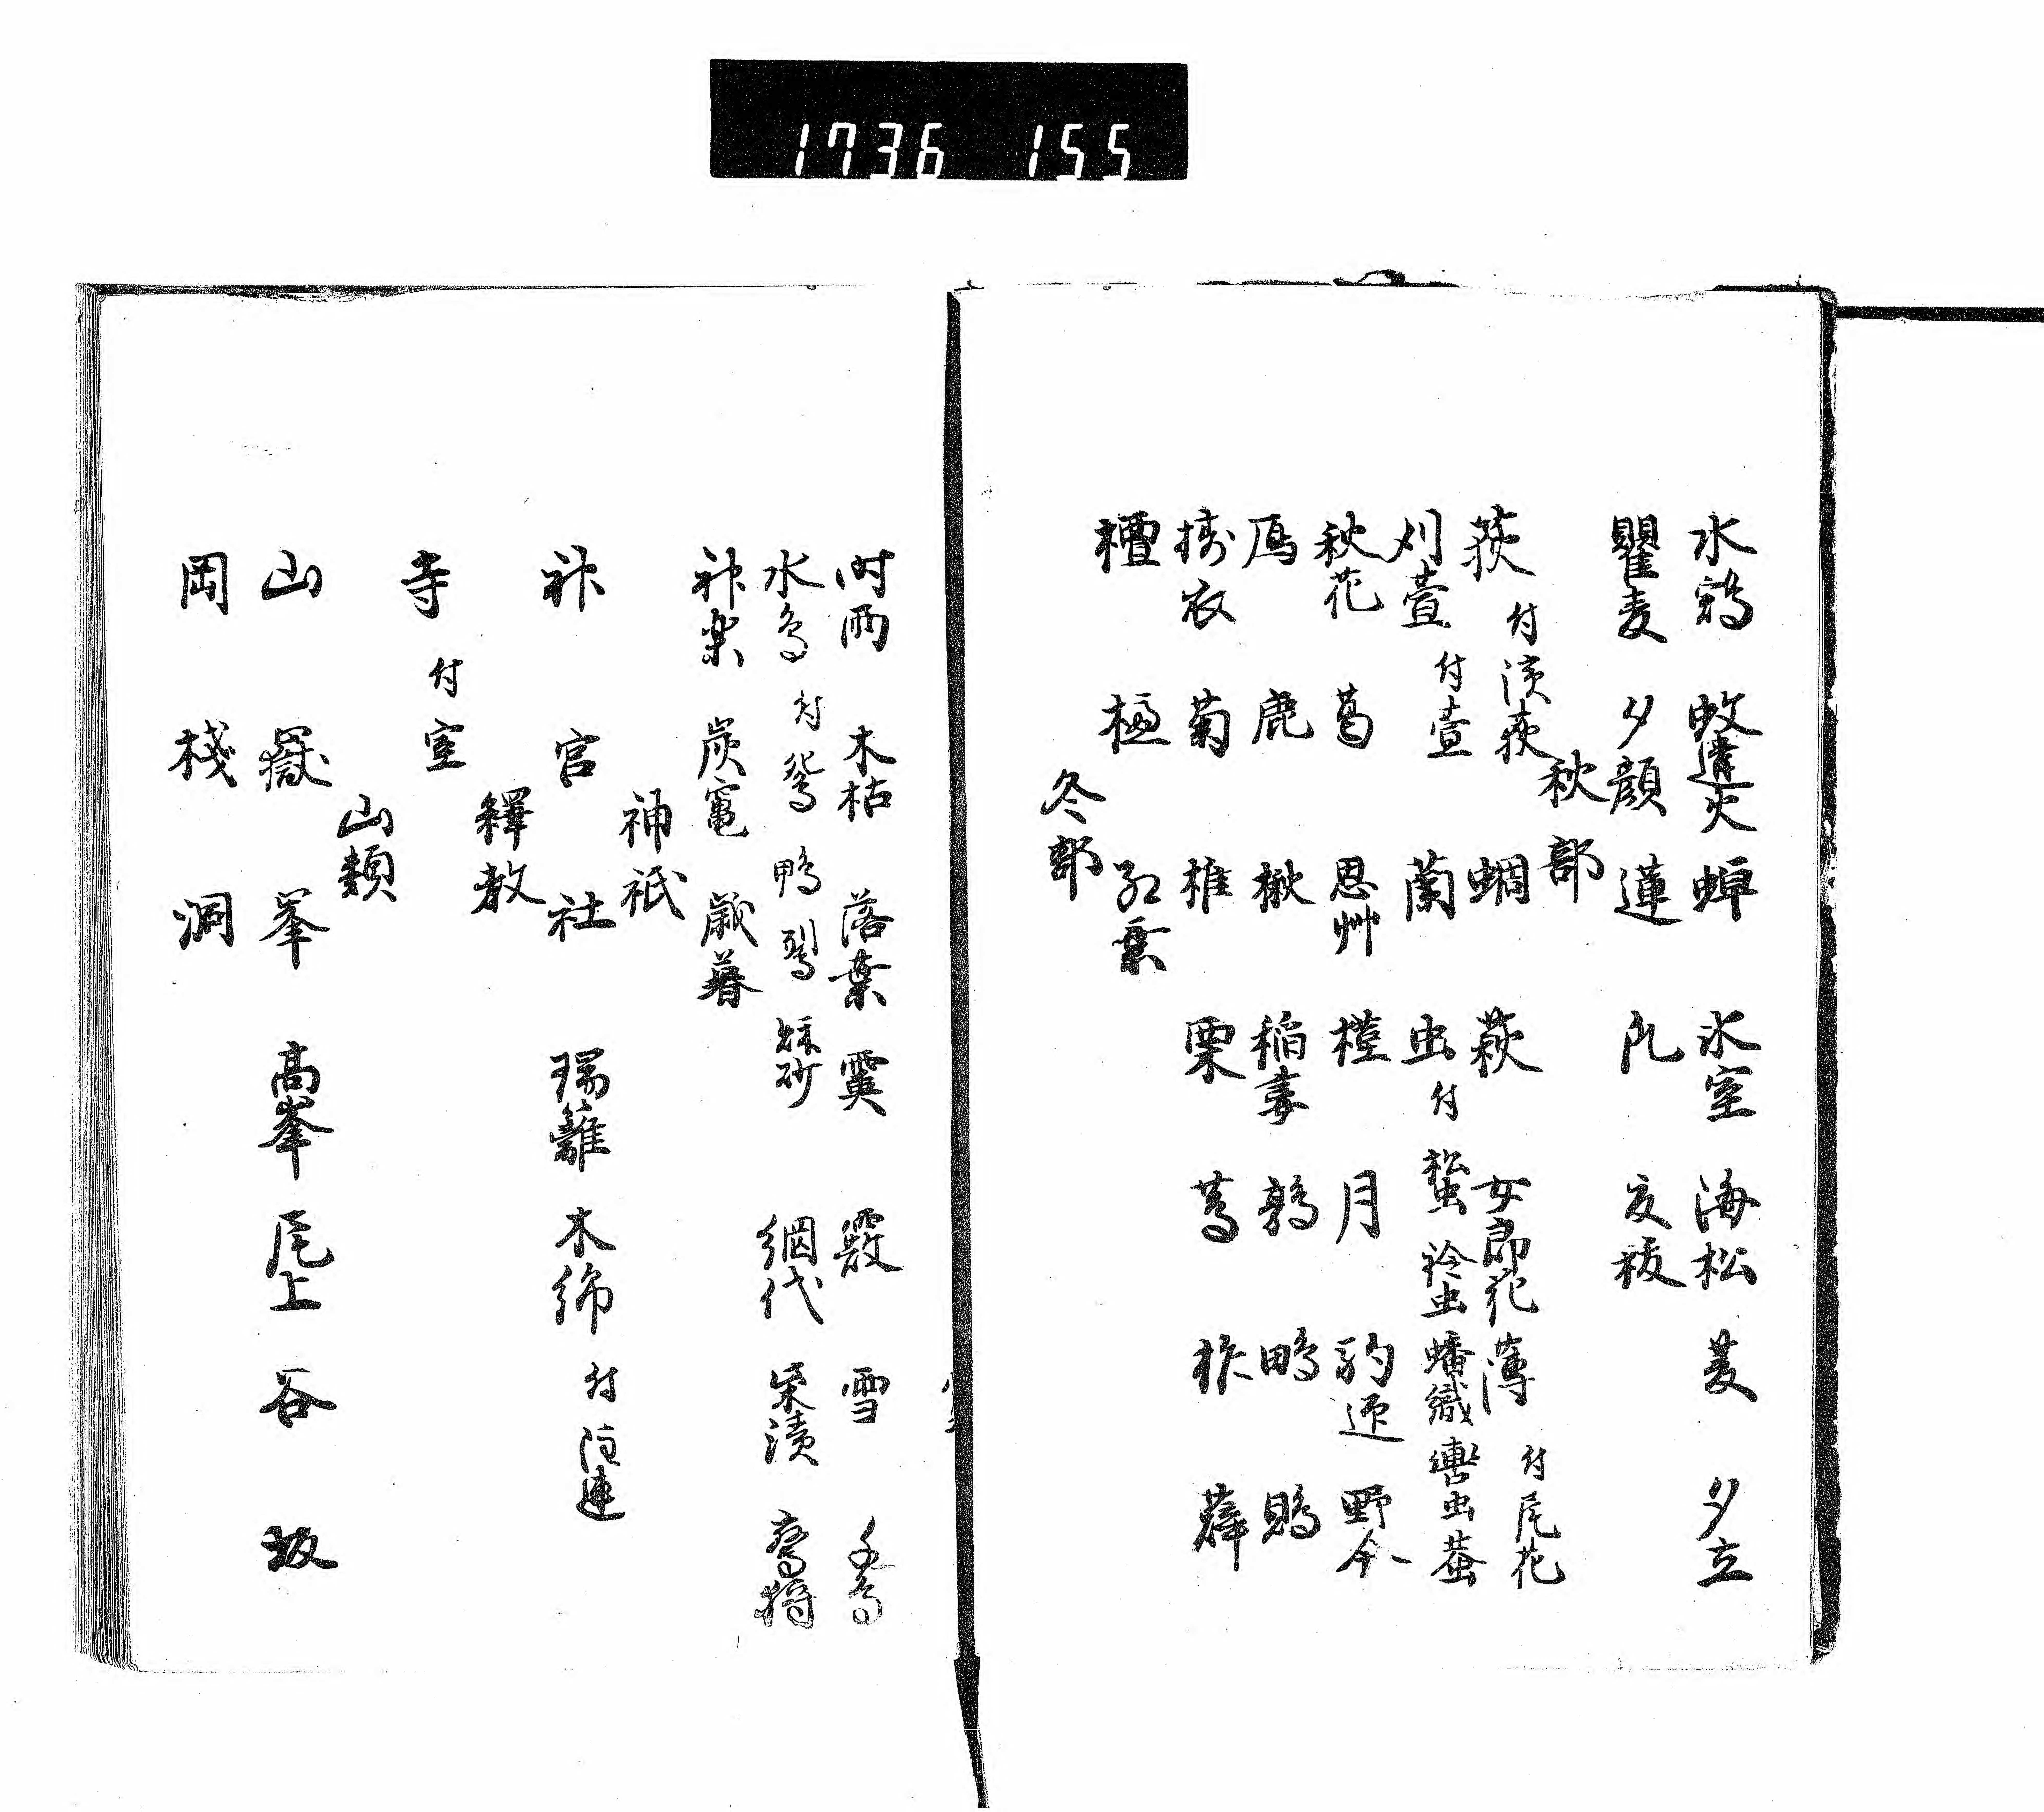 1736 155
水鶏 蚊遣火 蝉 氷室 海松 菱 夕立
瞿麦 夕顔 蓮 瓜 夏祓
秋部
荻 付濱荻 蜩 萩 女郎花 薄 付尾花
刈萱 付萱 蘭 虫 付 蛬 鈴虫 蟠織 轡虫 蛬
秋花 葛 思艸 槿 月 駒迎 野分
鴈 鹿 楸 稲妻 鶉 鴫 鵙
擣衣 菊 椎 栗 蔦 柞 薜
檀 櫨 紅葉
冬部
时雨 木枯 落葉 霙 霰 雪 千鳥
水鳥 付 鴛 鴨 䴇 網代 柴漬 鷹狩
神楽 炭竃 歳暮
神祇
神 宮 社 瑞籬 木綿 付 注連
釋教
寺 付室
山類
山 嶽 峯 高峯 尾上 谷 坂
岡 棧 洞